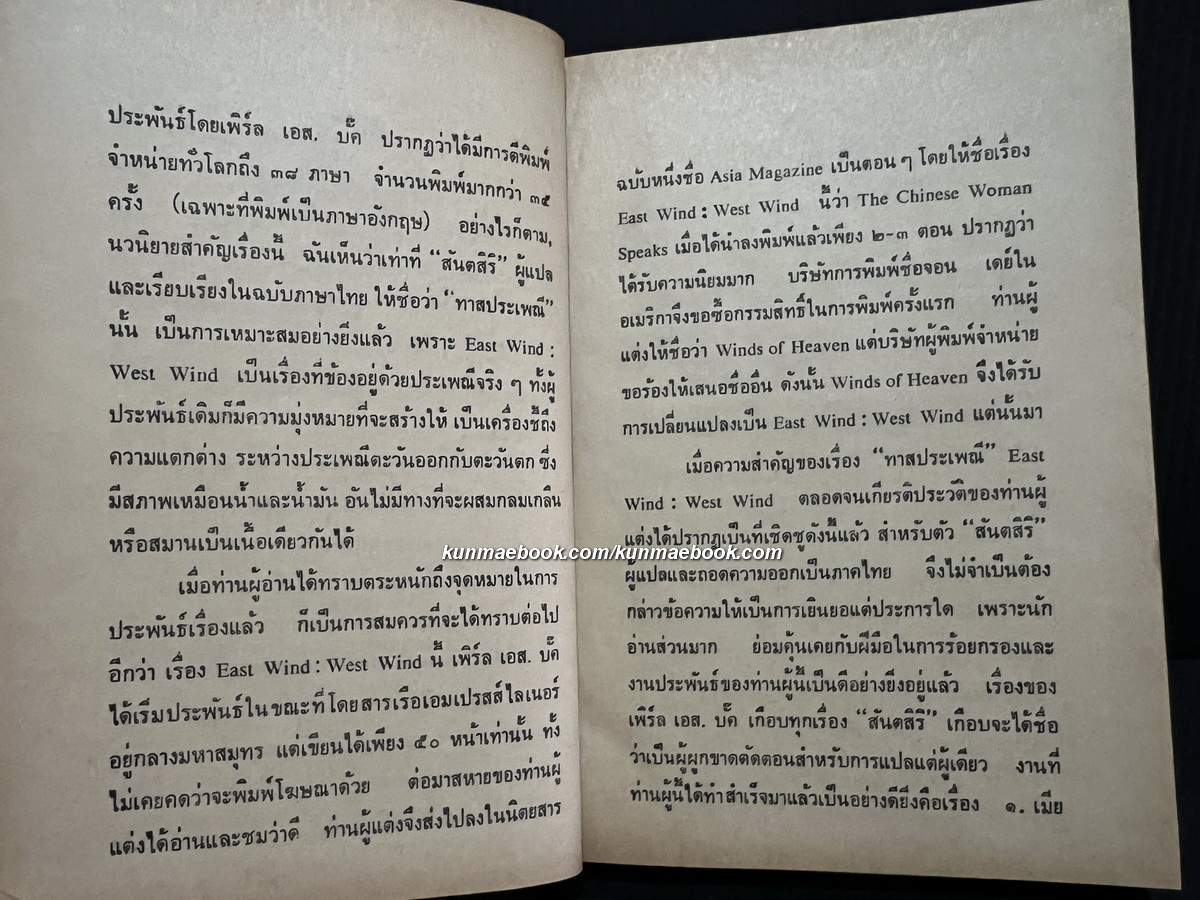 ประพันธ์โดยเพิร์ล เอส. บั๊ค ปรากฏว่าได้มีการตีพิมพ์
จำหน่ายทั่วโลกถึง ๓๘ ภาษา จำนวนพิมพ์มากกว่า ๓๕
ครั้ง (เฉพาะที่พิมพ์เป็นภาษาอังกฤษ) อย่างไรก็ตาม,
นวนิยายสำคัญเรื่องนี้ ฉันเห็นว่าเท่าที่ “สันตสิริ” ผู้แปล
และเรียบเรียงในฉบับภาษาไทย ให้ชื่อว่า “ทาสประเพณี”
นั้น เป็นการเหมาะสมอย่างยิ่งแล้ว เพราะ East Wind :
West Wind เป็นเรื่องที่ข้องอยู่ด้วยประเพณีจริง ๆ ทั้งผู้
ประพันธ์เดิมก็มีความมุ่งหมายที่จะสร้างให้ เป็นเครื่องชี้ถึง
ความแตกต่าง ระหว่างประเพณีตะวันออกกับตะวันตก ซึ่ง
มีสภาพเหมือนน้ำและน้ำมัน อันไม่มีทางที่จะผสมกลมเกลืน
หรือสมานเป็นเนื้อเดียวกันได้
เมื่อท่านผู้อ่านได้ทราบตระหนักถึงจุดหมายในการ
ประพันธ์เรื่องแล้ว ก็เป็นการสมควรที่จะได้ทราบต่อไป
อีกว่า เรื่อง East Wind : West Wind นี้ เพิร์ล เอส. บั๊ค
ได้เริ่มประพันธ์ในขณะที่โดยสารเรือเอมเปรสส์ไลเนอร์
อยู่กลางมหาสมุทร แต่เขียนได้เพียง ๕๐ หน้าเท่านั้น ทั้ง
ไม่เคยคิดว่าจะพิมพ์โฆษณาด้วย ต่อมาสหายของท่านผู้
แต่งได้อ่านและชมว่าดี ท่านผู้แต่งจึงส่งไปลงในนิตยสาร
ฉบับหนึ่งชื่อ Asia Magazine เป็นตอน ๆ โดยให้ชื่อเรื่อง
East Wind : West Wind นี้ว่า The Chinese Woman
Speaks เมื่อได้นำลงพิมพ์แล้วเพียง ๒-๓ ตอน ปรากฏว่า
ได้รับความนิยมมาก บริษัทการพิมพ์ชื่อจอน เดย์ใน
อเมริกาจึงขอซื้อกรรมสิทธิ์ในการพิมพ์ครั้งแรก ท่านผู้
แต่งให้ชื่อว่า Winds of Heaven แต่บริษัทผู้พิมพ์จำหน่าย
ขอร้องให้เสนอชื่ออื่น ดังนั้น Winds of Heaven จึงได้รับ
การเปลี่ยนแปลงเป็น East Wind : West Wind แต่นั้นมา
เมื่อความสำคัญของเรื่อง “ทาสประเพณี” East
Wind : West Wind ตลอดจนเกียรติประวัติของท่านผู้
แต่งได้ปรากฏเป็นที่เชิดชูดังนี้แล้ว สำหรับตัว “สันตสิริ”
ผู้แปลและถอดความออกเป็นภาคไทย จึงไม่จำเป็นต้อง
กล่าวข้อความให้เป็นการเยินยอแต่ประการใด เพราะนัก
อ่านส่วนมาก ย่อมคุ้นเคยกับฝีมือในการร้อยกรองและ
งานประพันธ์ของท่านผู้นี้เป็นดีอย่างยิ่งอยู่แล้ว เรื่องของ
เพิร์ล เอส. บั๊ค เกือบทุกเรื่อง “สันตสิริ” เกือบจะได้ชื่อ
ว่าเป็นผู้ผูกขาดตัดตอนสำหรับการแปลแต่ผู้เดียว งานที่
ท่านผู้นี้ได้ทำสำเร็จมาแล้วเป็นอย่างดียิ่งคือเรื่อง ๑. เมีย
kunmaebook.com/kunmaebook.com